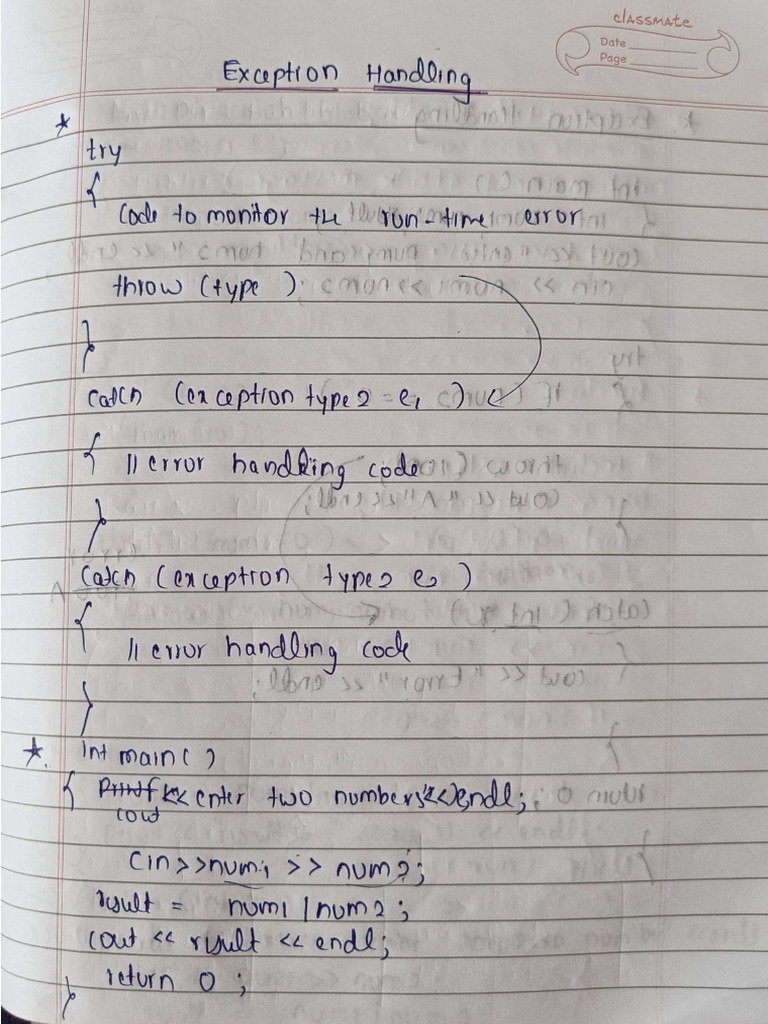 classmate
Date
Page
Exception Handling
*
try
{
code to monitor the run-time error
throw (type );
}
catch (exception type2 = e1 )
{ // error handling code
}
catch (exception type2 e2 )
{
// error handling code
}
*. int main( )
{ printf << enter two numbers"<<endl;
cout
cin>>num1 >> num2;
result = num1 / num2 ;
cout << result << endl;
return 0 ;
}